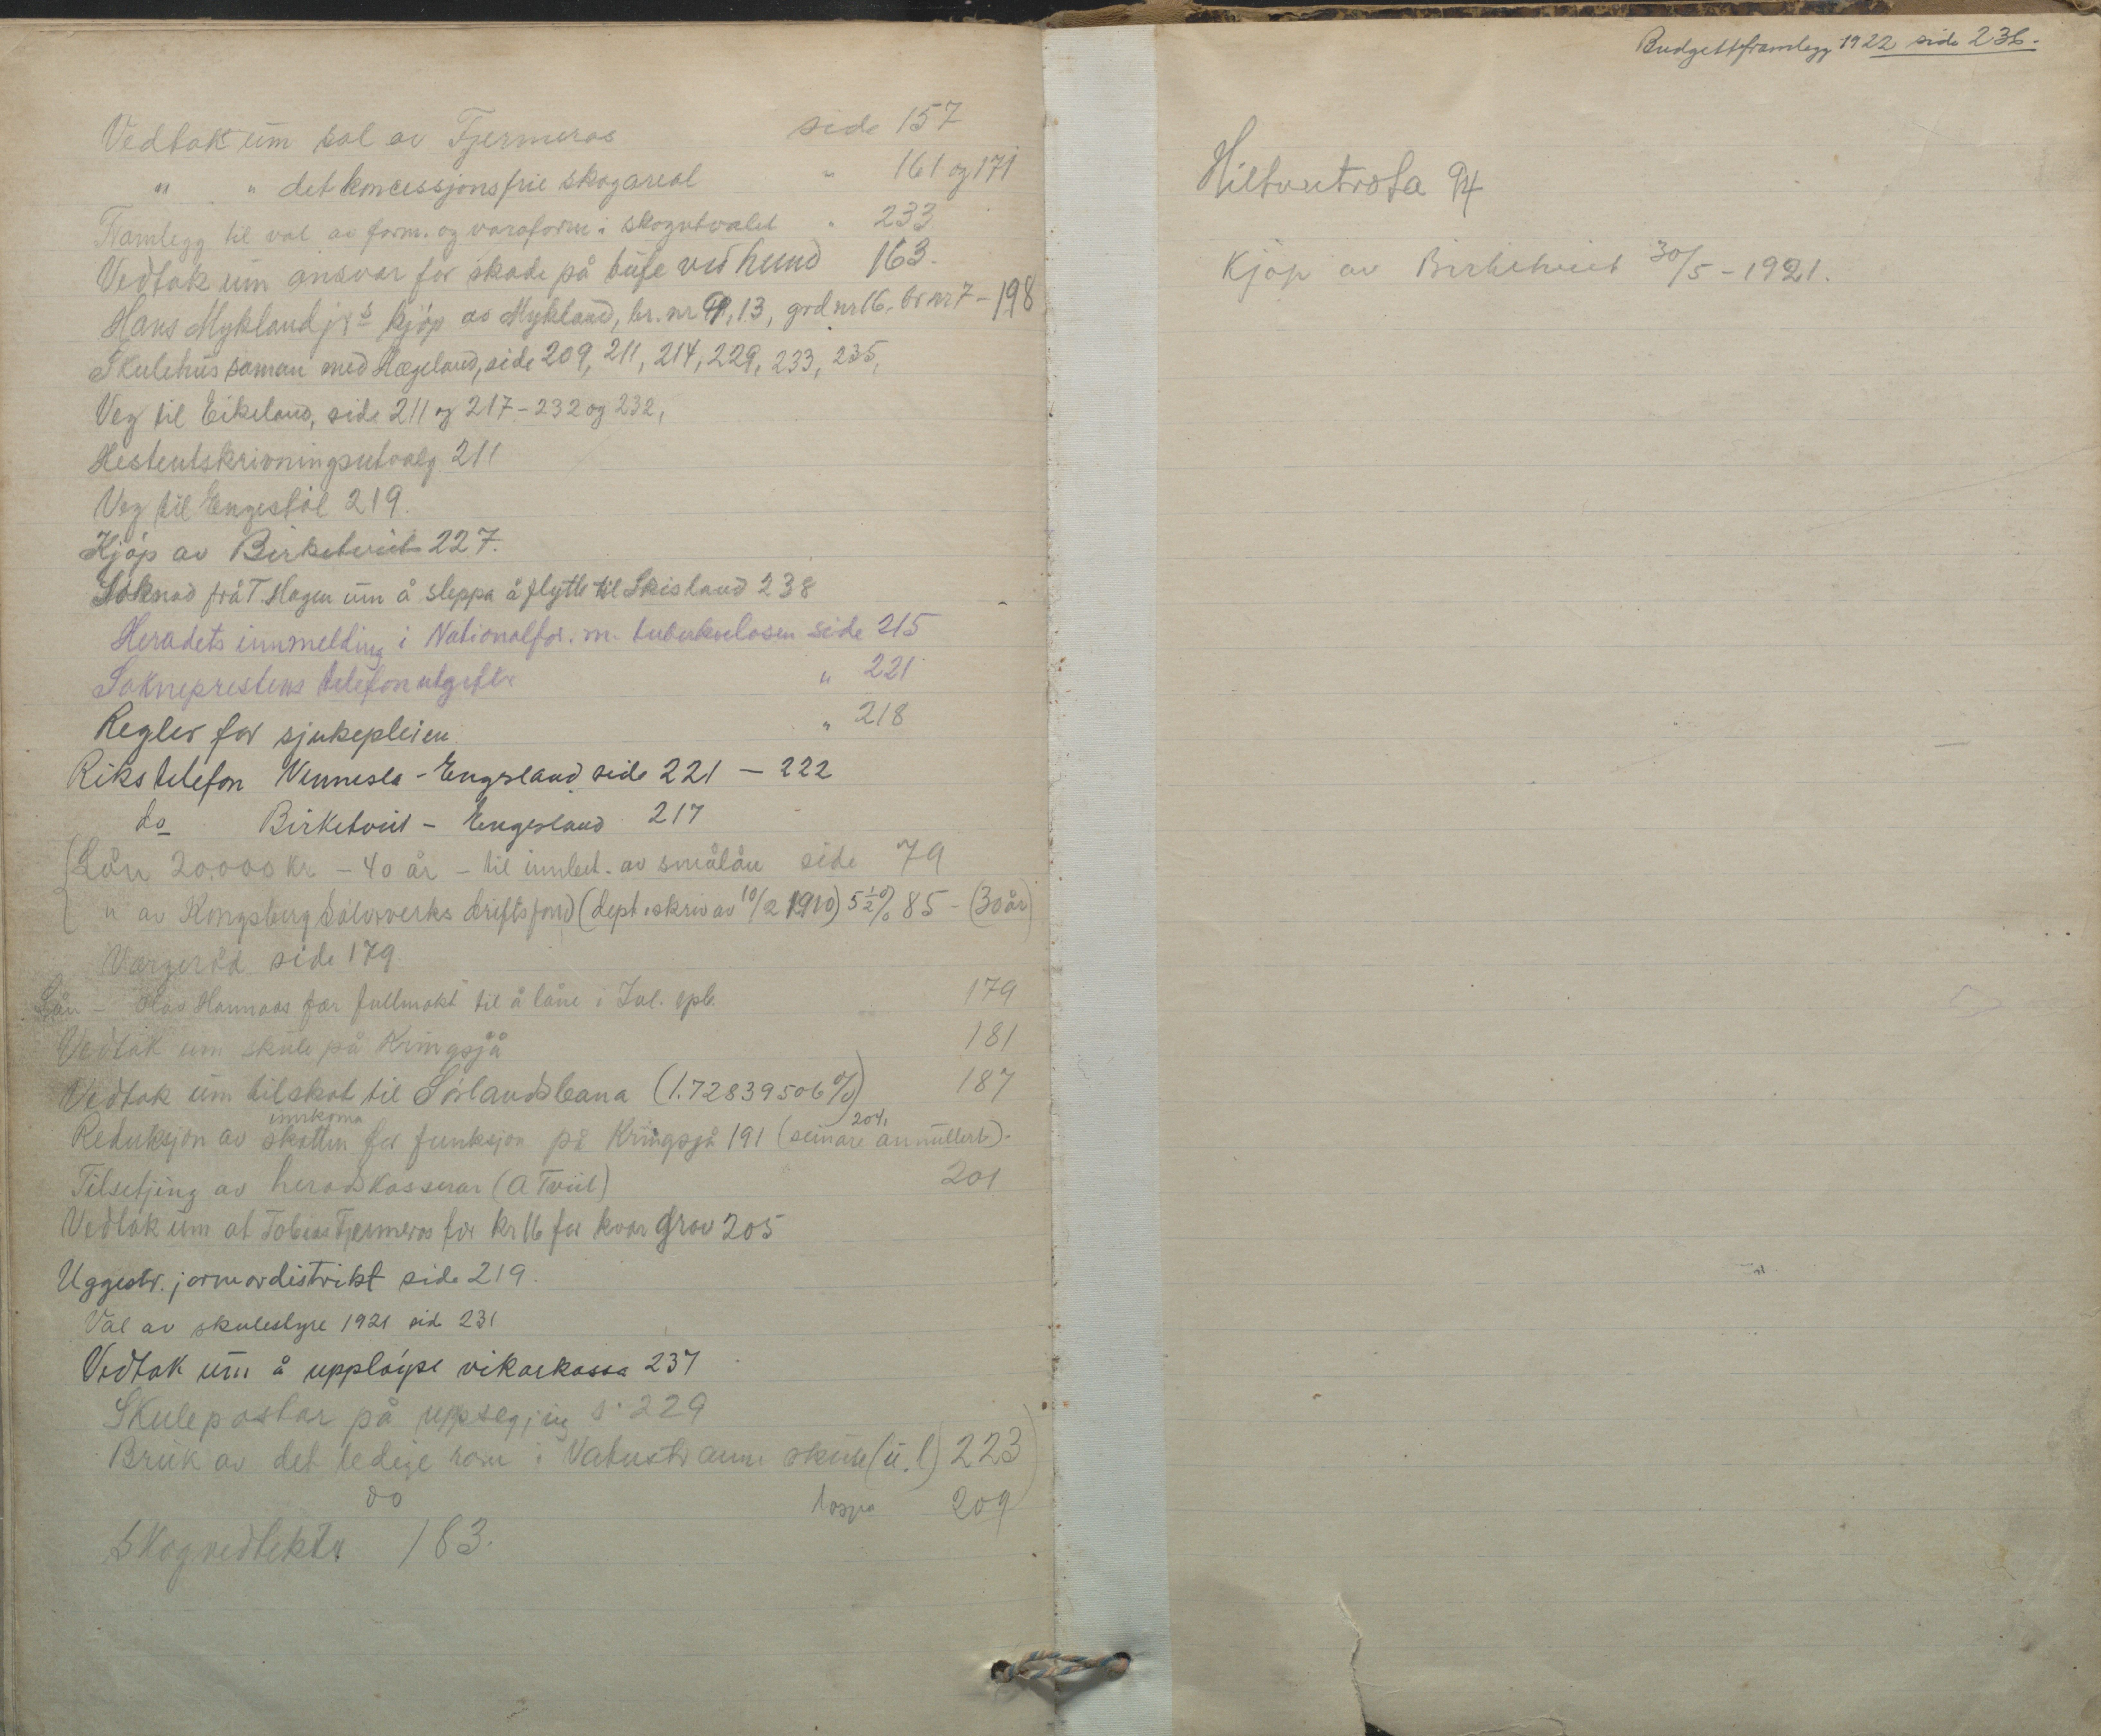 Vedtak um sal av Fjermeros side 157
" " det koncessjonsfrie skogareal " 161 og 171
Framlegg til val av form. og varaform i skogutvalet " 233
Vedtak um ansvar for skade på bufe ved hund 163.
Hans Mykland jrs kjøp av Mykland, br. nr 9, 13, grd nr 16. br nr 7 - 198
Skulehus saman med Hægeland, side 209, 211, 214, 229, 233, 235,
Veg til Eikeland, side 211 og 217 - 232 og 232,
Hesteutskrivningsutvalg 211
Veg til Engestøl 219.
Kjøp av Birketveit 227.
Søknad frå T. Hagen um å sleppa å flytte til Skisland 238
Heradets innmelding i Nationalfor. m. tuberkulosen side 215
Sokneprestens telefonutgifter " 221
Regler for sjukepleien " 218
Rikstelefon Vennesla - Engesland side 221 - 222
do Birketveit - Engesland 217
Lån 20.000 kr - 40 år - til innbet. av smålån side 79
" av Kongsberg Sølvverks driftsfond (dept. skriv av 10/2 1910) 5½% 85 - (30 år)
Vergeråd side 179
Lån - Olav Hannaas får fullmakt til å låne i Ivl. spb. 179
Vedtak um skule på Kringsjå 181
Vedtak um tilskot til Sørlandsbana (1.72839506%) 187
innkoma 204,
Reduksjon av skatten for funksjon på Kringsjå 191 (seinare annullert).
Tilsetjing av heradskasserar (A Tveit) 201
Vedtak um at Tobias Fjermeros får kr 16 for kvar grav 205
Uggestr. jormordistrikt side 219.
Val av skulestyre 1921 sid 231
Vedtak um å uppløyse vikarkassa 237
Skulepostar på uppsegjing s. 229
Bruk av det ledige rom i Vatnstraum skule (u. l) 223
do 209
Skogvedtekter 183.
Budgettframlegg 1922 side 236.
Hiltveitrota 94
Kjøp av Birketveit 30/5 - 1921.